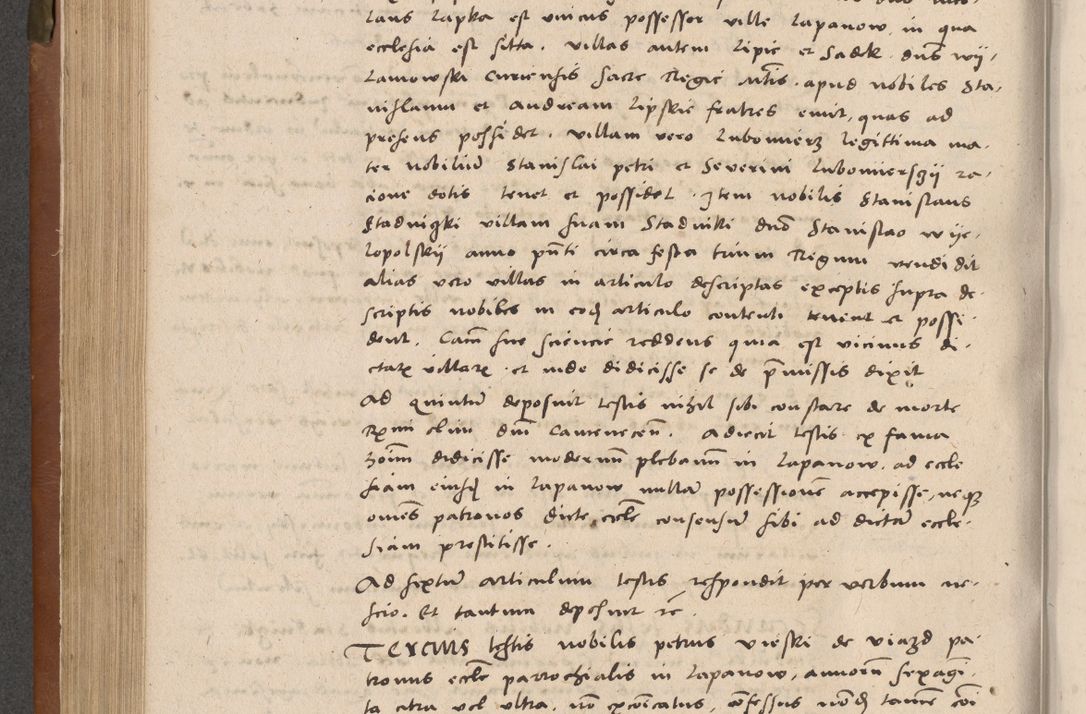 laus Lapka est unicus possessor ville Lapanow, in qua
ecclesia est sitta. villas autem Lipie et Sadek dns wij-
Lamowski Curiensis sacre Regie Mtis apud nobiles Sta-
nislaum et Andream Lipskie fratres emit, quas ad
presens possidet. villam vero Lubomierz legittima ma-
ter nobiliu Stanislai petri et Severini Lubomierszij ra-
cione dotis tenet et possidet. Item nobilis Stanislaus
Stadniczki villam suam Stadniki dno Stanislao wije-
lopolskij anno pnti circa festa trium Regum vendidit
alias vero villas in articulo descriptas exceptis supra de-
scriptis nobiles in eod articulo contenti tenent et possi-
dent. Cam sue sciencie reddens quia est vicinus di-
ctar villar et inde didicisse se de pmissis dixit
Ad quintu deposuit testis nihil sibi constare de morte
Rmi olim dni Camenecen. Adiecit testis ex fama
hoim didicisse modernu plebanu in Lapanow, ad eccle
siam eiusd in Lapanow nulla possessione accepisse, neq
omes patronos dicte eccle consensu sibi ad dicta eccle-
siam prestitisse.
Ad sextu articulum testis respondit per verbum ne-
scio. Et tantum deposuit rc.
Tercius testis nobilis petrus vieski de viazd pa-
tronus eccle parrochialis in Lapanow, annoru sexagi-
ta citra vel ultra, no excoicatus, confessus nond tame coi